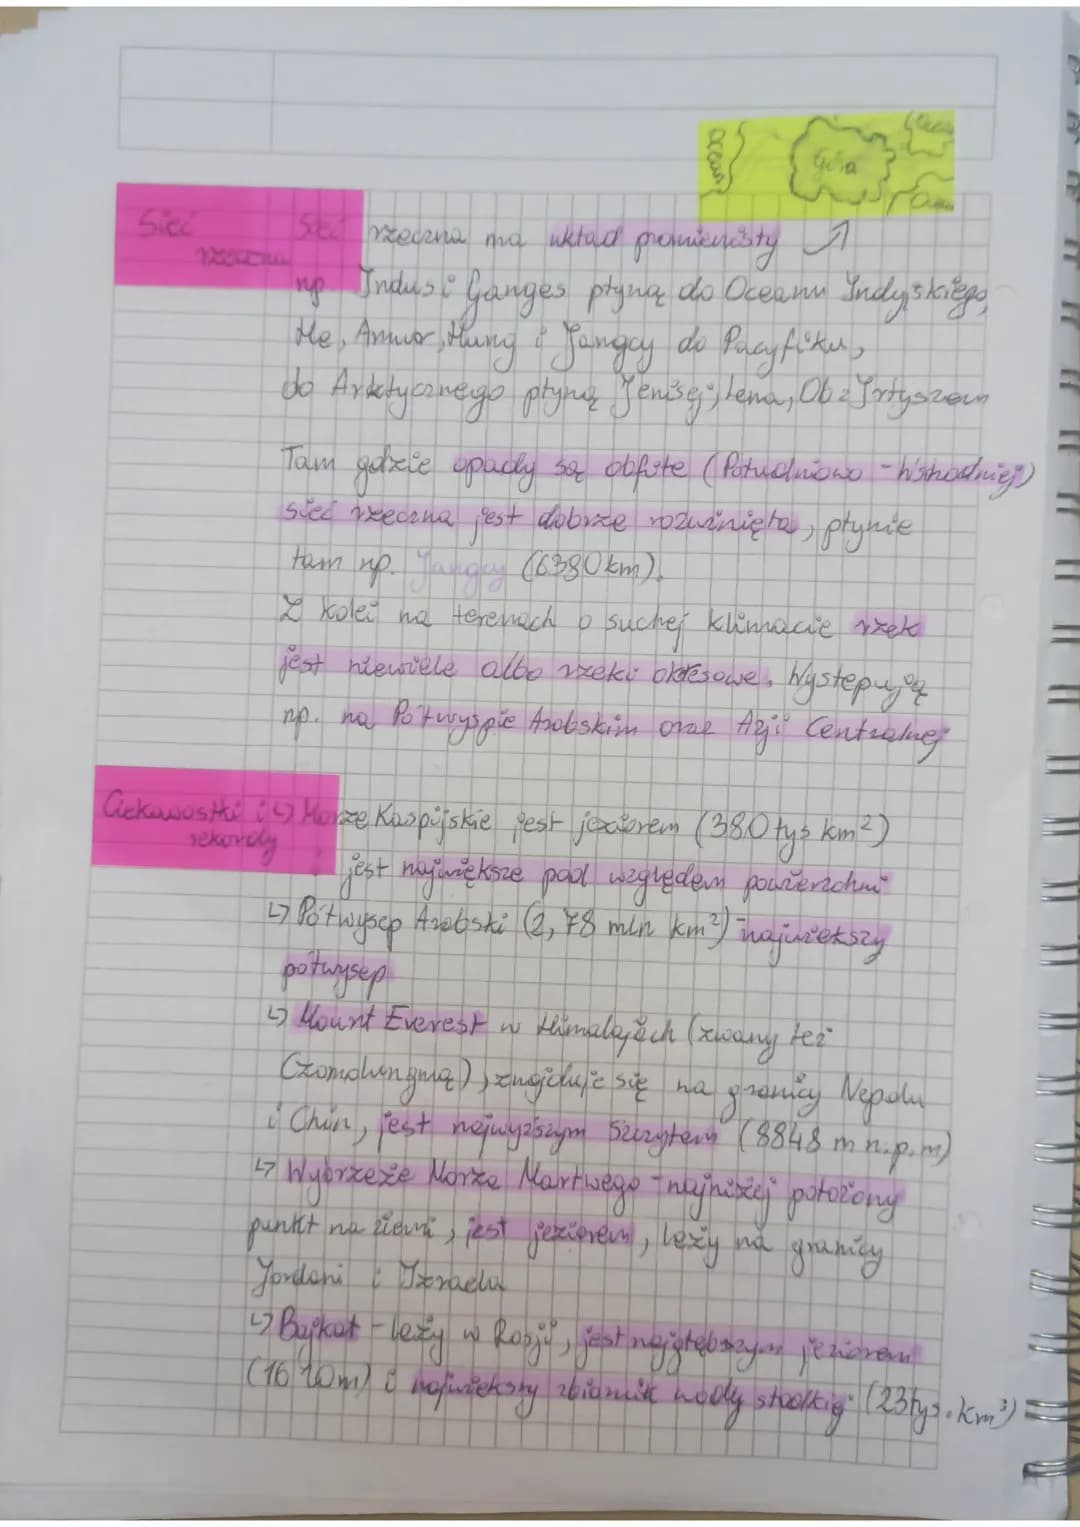 Ocean
Góra
Ocean
Ocean
Sieć
rzeczna
Sieć rzeczna ma układ promienisty
np. Indus i Ganges płyną do Oceanu Indyjskiego,
Me, Amur, Huang i Jangcy do Pacyfiku,
do Arktycznego płyną Jenisej, Lena, Ob z Irtyszem
Tam gdzie opady są obfite (Południowo - Wschodniej)
sieć rzeczna jest dobrze rozwinięta, płynie
tam np. Jangcy (6380km).
Z kolei na terenach o suchej klimacie rzek
jest niewiele albo rzeki okresowe. Występują
np. na Półwyspie Arabskim oraz Azji Centralnej
Ciekawostki i
rekordy
↳ Morze Kaspijskie jest jeziorem (380 tys km²)
jest największe pod względem powierzchni
↳ Półwysep Arabski (2,78 mln km²) - największy
półwysep
↳ Mount Everest w Himalajach (zwany też
Czomolungmą), znajduje się na granicy Nepalu
i Chin, jest najwyższym szczytem (8848 m n.p.m)
↳ Wybrzeże Morza Martwego - najniżej położony
punkt na ziemi, jest jeziorem, leży na granicy
Jordani i Izraelu
↳ Bajkał - leży w Rosji, jest najgłębszym jeziorem
(1620m) i największy zbiornik wody słodkiej (23tys.km³)